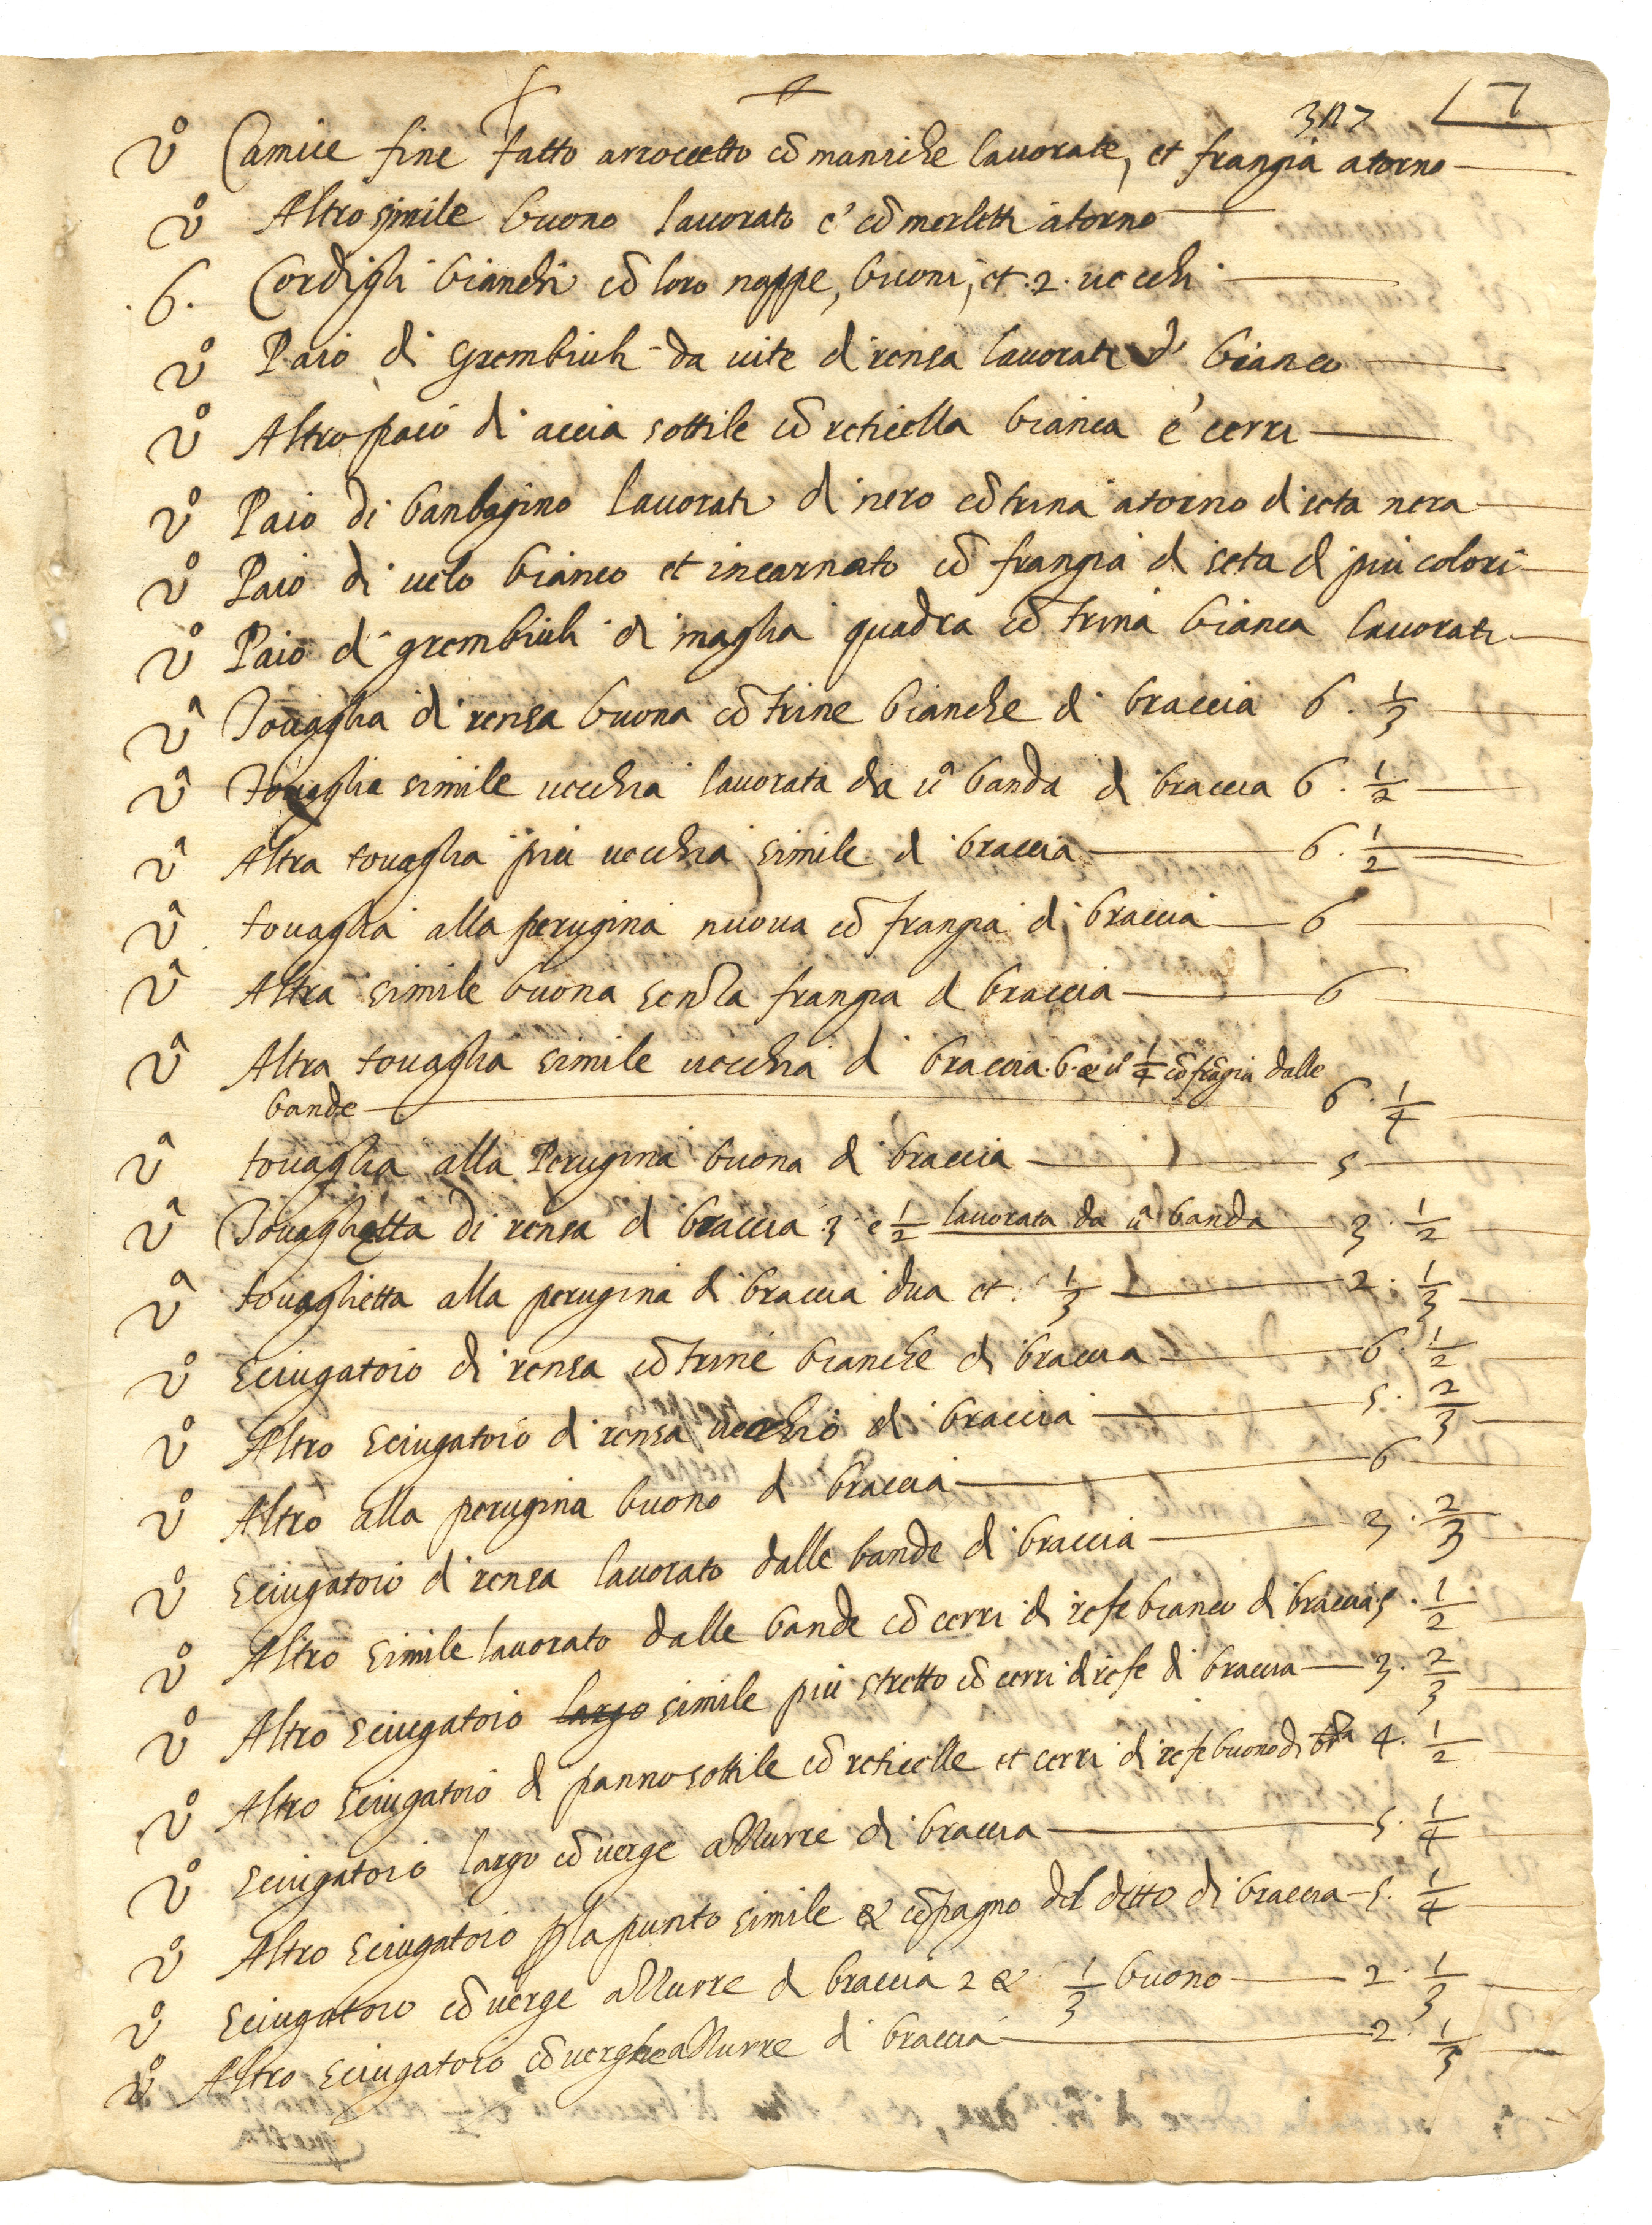 327 17
Vº Camice fine fatto arroccetto cō maniche lauorate, et frangia atorno
Vº Altro simile buono lauorato e' cō merletti atorno
.6. Cordigli bianchi cō loro nappe, buoni, et .2. uecchi
Vº Paio di grembiuli da uite di rensa lauorati di bianco
Vº Altro paio di accia sottile cō reticella bianca e' cerri
Vº Paio di banbagino lauorati di nero cō trina atorno di seta nera
Vº Paio di uelo bianco et incarnato cō frangia di seta di piu colori
Vº Paio di grembiuli di maglia quadra cō trina bianca lauorati
Vª Touaglia di rensa buona cō trine bianche di braccia 6. 1/3
Vª Touaglia simile uecchia lauorata da uª banda di braccia 6. 1/2
Vª Altra touaglia piu uecchia simile di braccia 6. 1/2
Vª touaglia alla perugina nuoua cō frangia di braccia 6
Vª Altra simile buona senza frangia di braccia 6
Vª Altra touaglia simile uecchia di braccia .6. e uº 1/4 cō frāgia dalle
bande 6. 1/4
Vª touaglia alla Perugina buona di braccia 5
Vª Touaglietta di rensa di braccia 3 e 1/2 lauorata da uª banda 3. 1/2
Vª touaglietta alla perugina di braccia dua et 1/3 2. 1/3
Vº Sciugatoio di rensa cō trine bianche di braccia 6. 1/2
Vº Altro sciugatoio di rensa uecchio di braccia 5. 2/3
Vº Altro alla perugina buono di braccia 6
Vº Sciugatoio di rensa lauorato dalle bande di braccia 3. 2/3
Vº Altro simile lauorato dalle bande cō cerri di refe bianco di braccia 5. 1/2
Vº Altro sciugatoio largo simile piu stretto cō cerri di refe di braccia 3. 2/3
Vº Altro sciugatoio di panno sottile cō reticelle et cerri di refe buono di brª 4. 1/2
Vº Sciugatoio largo cō uerge azzurre di braccia 5. 1/4
Vº Altro sciugatoio p la punto simile & cōpagno del ditto di braccia 5. 1/4
Vº Sciugatoio cō uerge azzurre di braccia 2 & 1/3 buono 2. 1/3
Vº Altro sciugatoio cō uerghe azzurre di braccia 2. 1/3